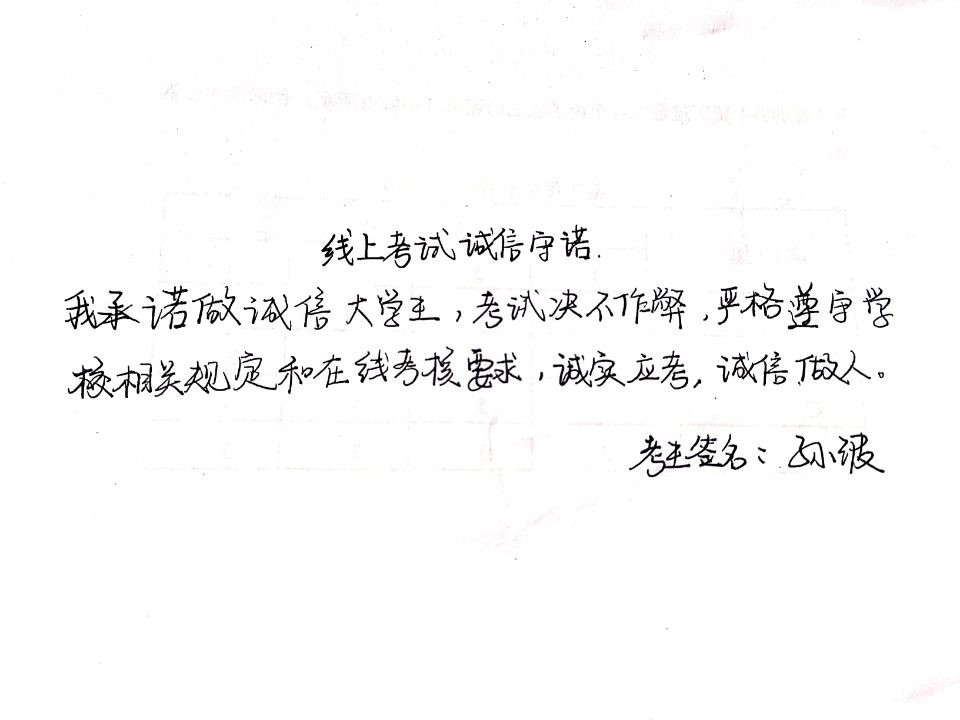 线上考试诚信守诺.
我承诺做诚信大学生，考试决不作弊，严格遵守学
校相关规定和在线考核要求，诚实应考，诚信做人。
考生签名：孙波